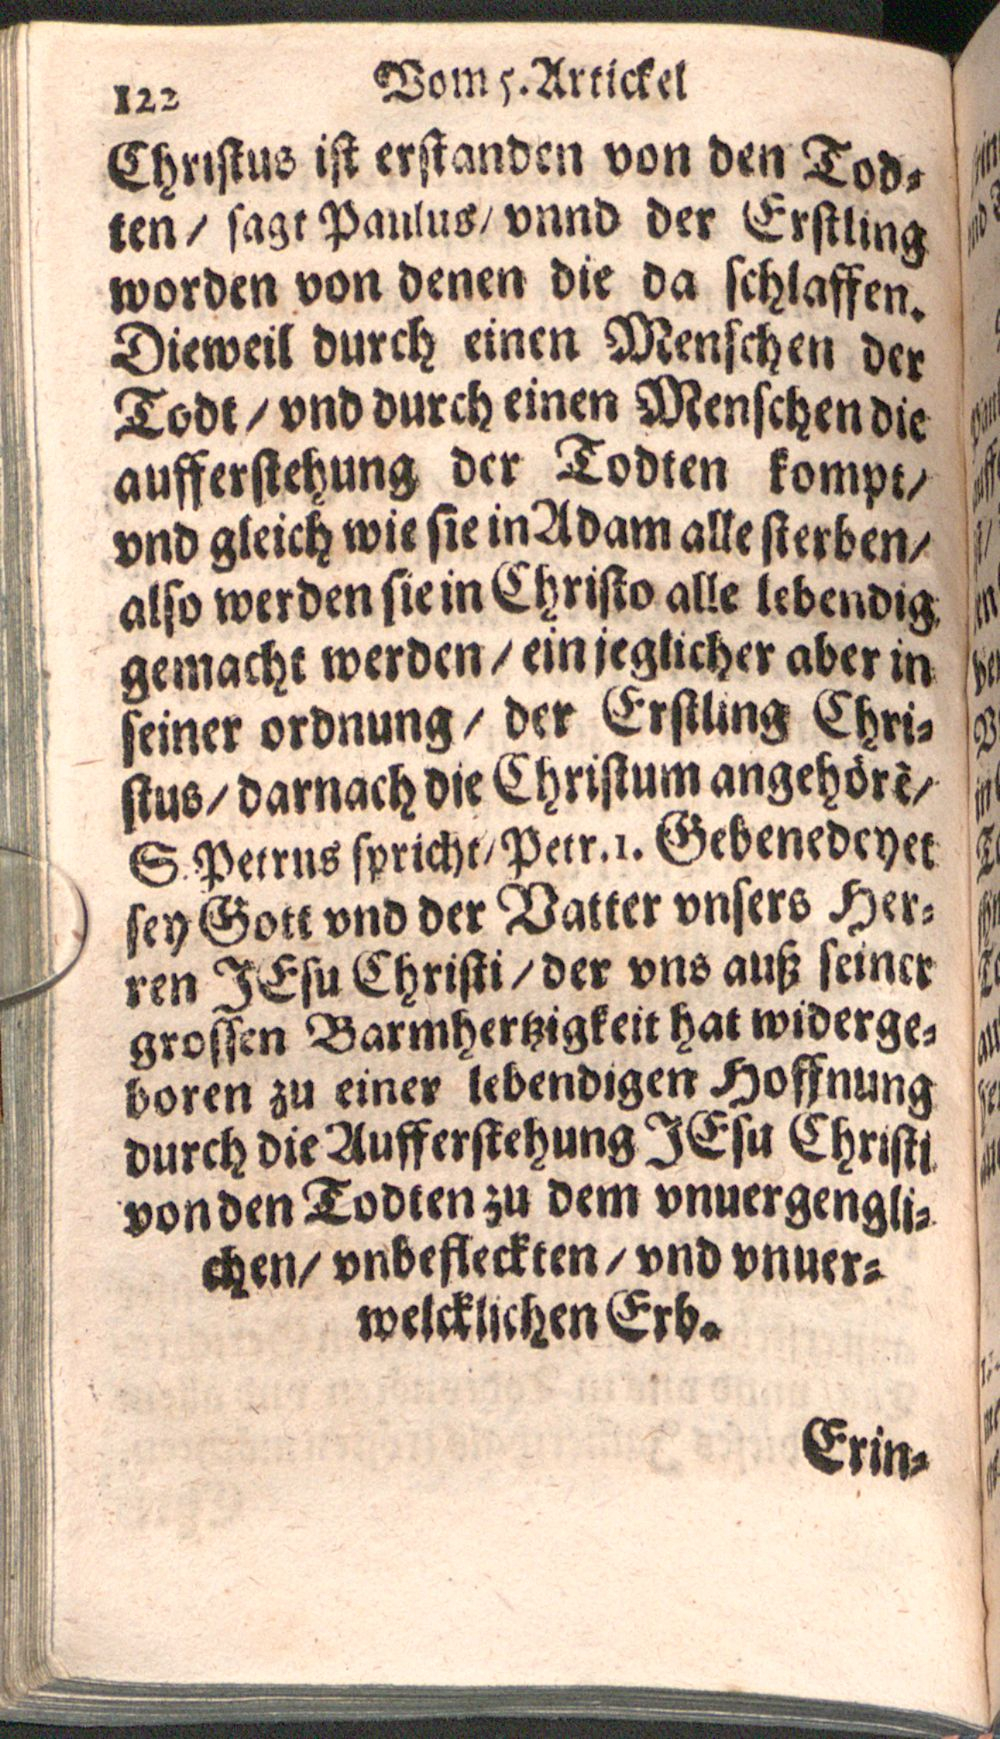 122 Vom 5. Artickel
Christus ist erstanden von den Tod-
ten / sagt Paulus / vnnd der Erstling
worden von denen die da schlaffen.
Dieweil durch einen Menschen der
Todt / vnd durch einen Menschen die
aufferstehung der Todten kompt /
vnd gleich wie sie in Adam alle sterben /
also werden sie in Christo alle lebendig
gemacht werden / ein jeglicher aber in
seiner ordnung / der Erstling Chri-
stus / darnach die Christum angehörẽ /
S. Petrus spricht / Petr. 1. Gebenedeyet
sey Gott vnd der Vatter vnsers Her-
ren JEsu Christi / der vns auß seiner
grossen Barmhertzigkeit hat widerge-
boren zu einer lebendigen Hoffnung
durch die Aufferstehung JEsu Christi
von den Todten zu dem vnuergengli-
chen / vnbefleckten / vnd vnuer-
welcklichen Erb.
Erin-